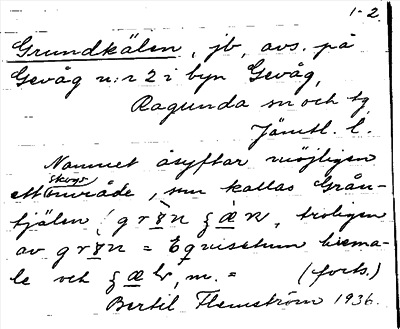 1-2.
Grundkälen, jb, avs. på
Gevåg n:r 2 i byn Gevåg,
Ragunda sn och tg
Jämtl. l.
Namnet åsyftar möjligen
ett skogsområde, som kallas Grån-
tjälen, troligen
av = Equisetum hiema-
le och m. = (forts.)
Bertil Flemström 1936.